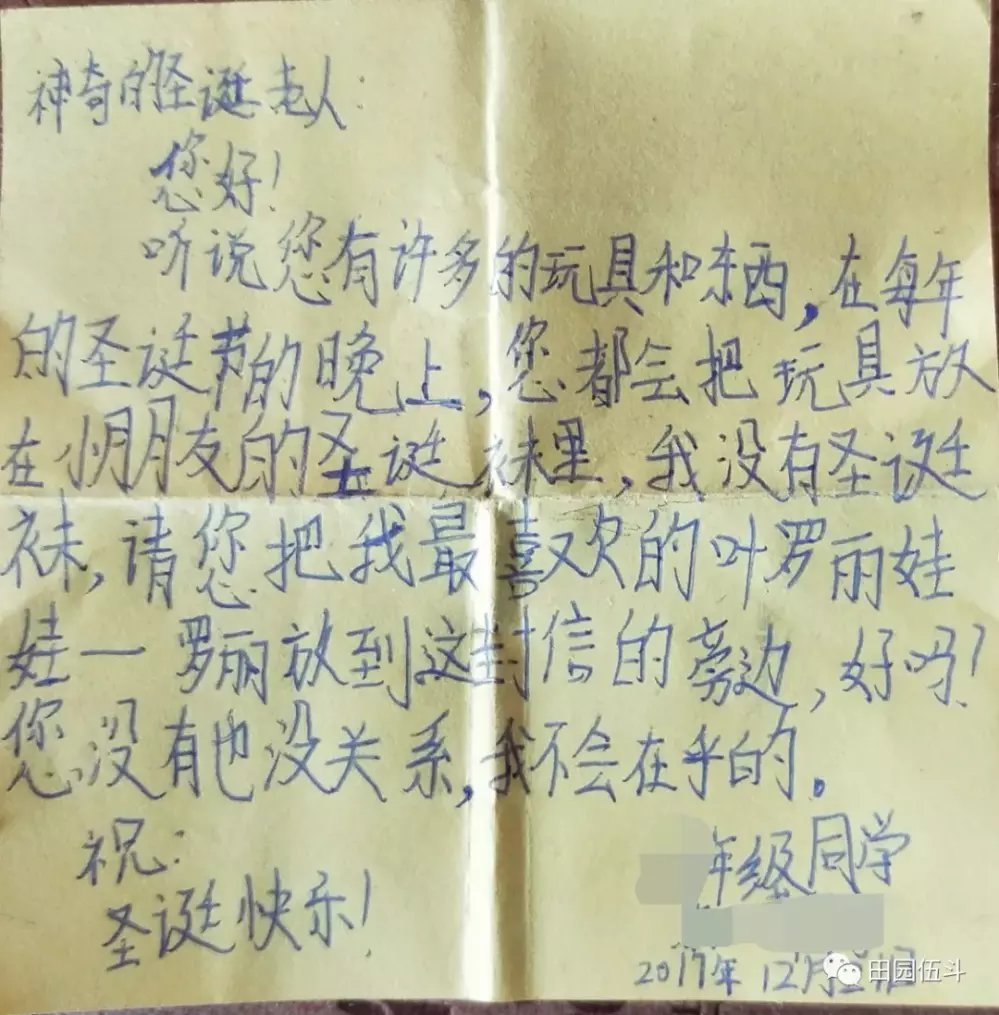 神奇的圣诞老人：
您好！
听说您有许多的玩具和东西，在每年
的圣诞节的晚上，您都会把玩具放
在小朋友的圣诞袜里，我没有圣诞
袜，请您把我最喜欢的叶罗丽娃
娃一罗丽放到这封信的旁边，好吗？
您没有也没关系，我不会在乎的。
祝：
圣诞快乐！
年级同学
2017年12月
田园伍斗